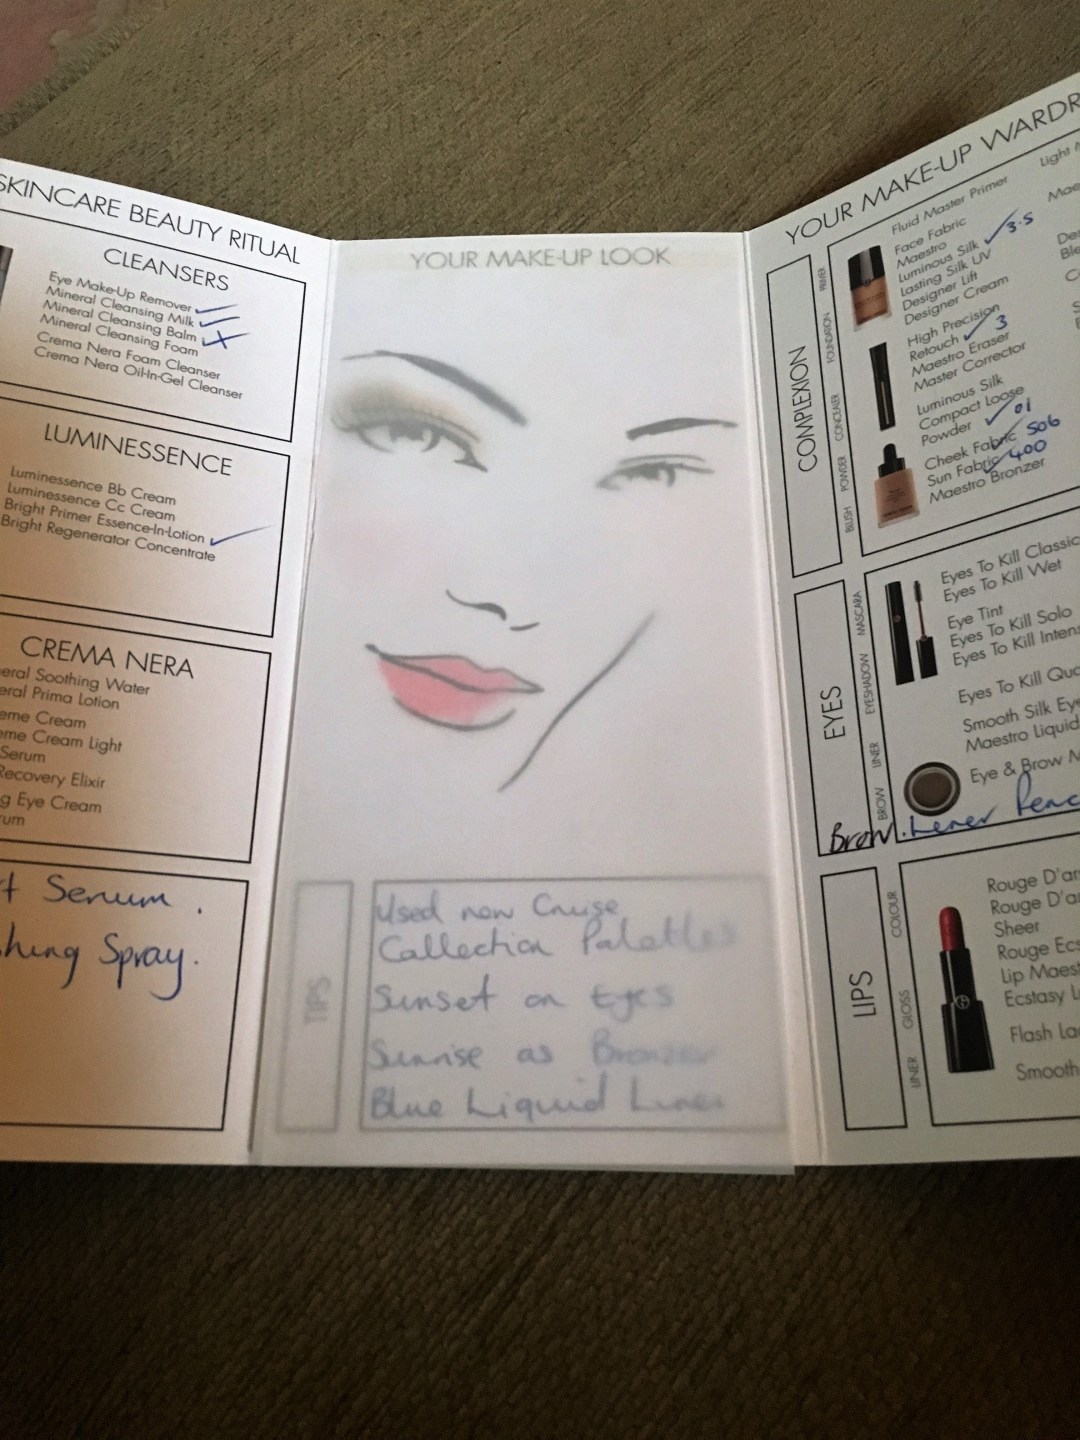 SKINCARE BEAUTY RITUAL
CLEANSERS
Eye Make-Up Remover
Mineral Cleansing Milk
Mineral Cleansing Balm
Mineral Cleansing Foam
Crema Nera Foam Cleanser
Crema Nera Oil-In-Gel Cleanser
LUMINESSENCE
Luminessence Bb Cream
Luminessence Cc Cream
Bright Primer Essence-In-Lotion
Bright Regenerator Concentrate
CREMA NERA
eral Soothing Water
eral Prima Lotion
eme Cream
eme Cream Light
Serum
Recovery Elixir
g Eye Cream
rum
t Serum.
hing Spray.
YOUR MAKE-UP LOOK
TIPS
Used new Cruise
Collection Palettes
Sunset on Eyes
Sunrise as Bronzer
Blue Liquid Liner
YOUR MAKE-UP WARDR
COMPLEXION
PRIMER
FOUNDATION
CONCEALER
POWDER
BLUSH
Fluid Master Primer
Light M
Face Fabric
Maestro
Mae
Luminous Silk 3.5
Lasting Silk UV
Designer Lift
Des
Designer Cream
Ble
High Precision
Retouch 3
Maestro Eraser
Master Corrector
Luminous Silk
Compact Loose
Powder 01
Cheek Fabric 506
Sun Fabric 400
Maestro Bronzer
EYES
MASCARA
EYESHADOW
LINER
BROW
Eyes To Kill Classic
Eyes To Kill Wet
Eye Tint
Eyes To Kill Solo
Eyes To Kill Intens
Eyes To Kill Qua
Smooth Silk Eye
Maestro Liquid
Eye & Brow M
Brow. Liner Penc
LIPS
COLOUR
GLOSS
LINER
Rouge D'ar
Rouge D'a
Sheer
Rouge Ecs
Lip Maest
Ecstasy L
Flash La
Smooth